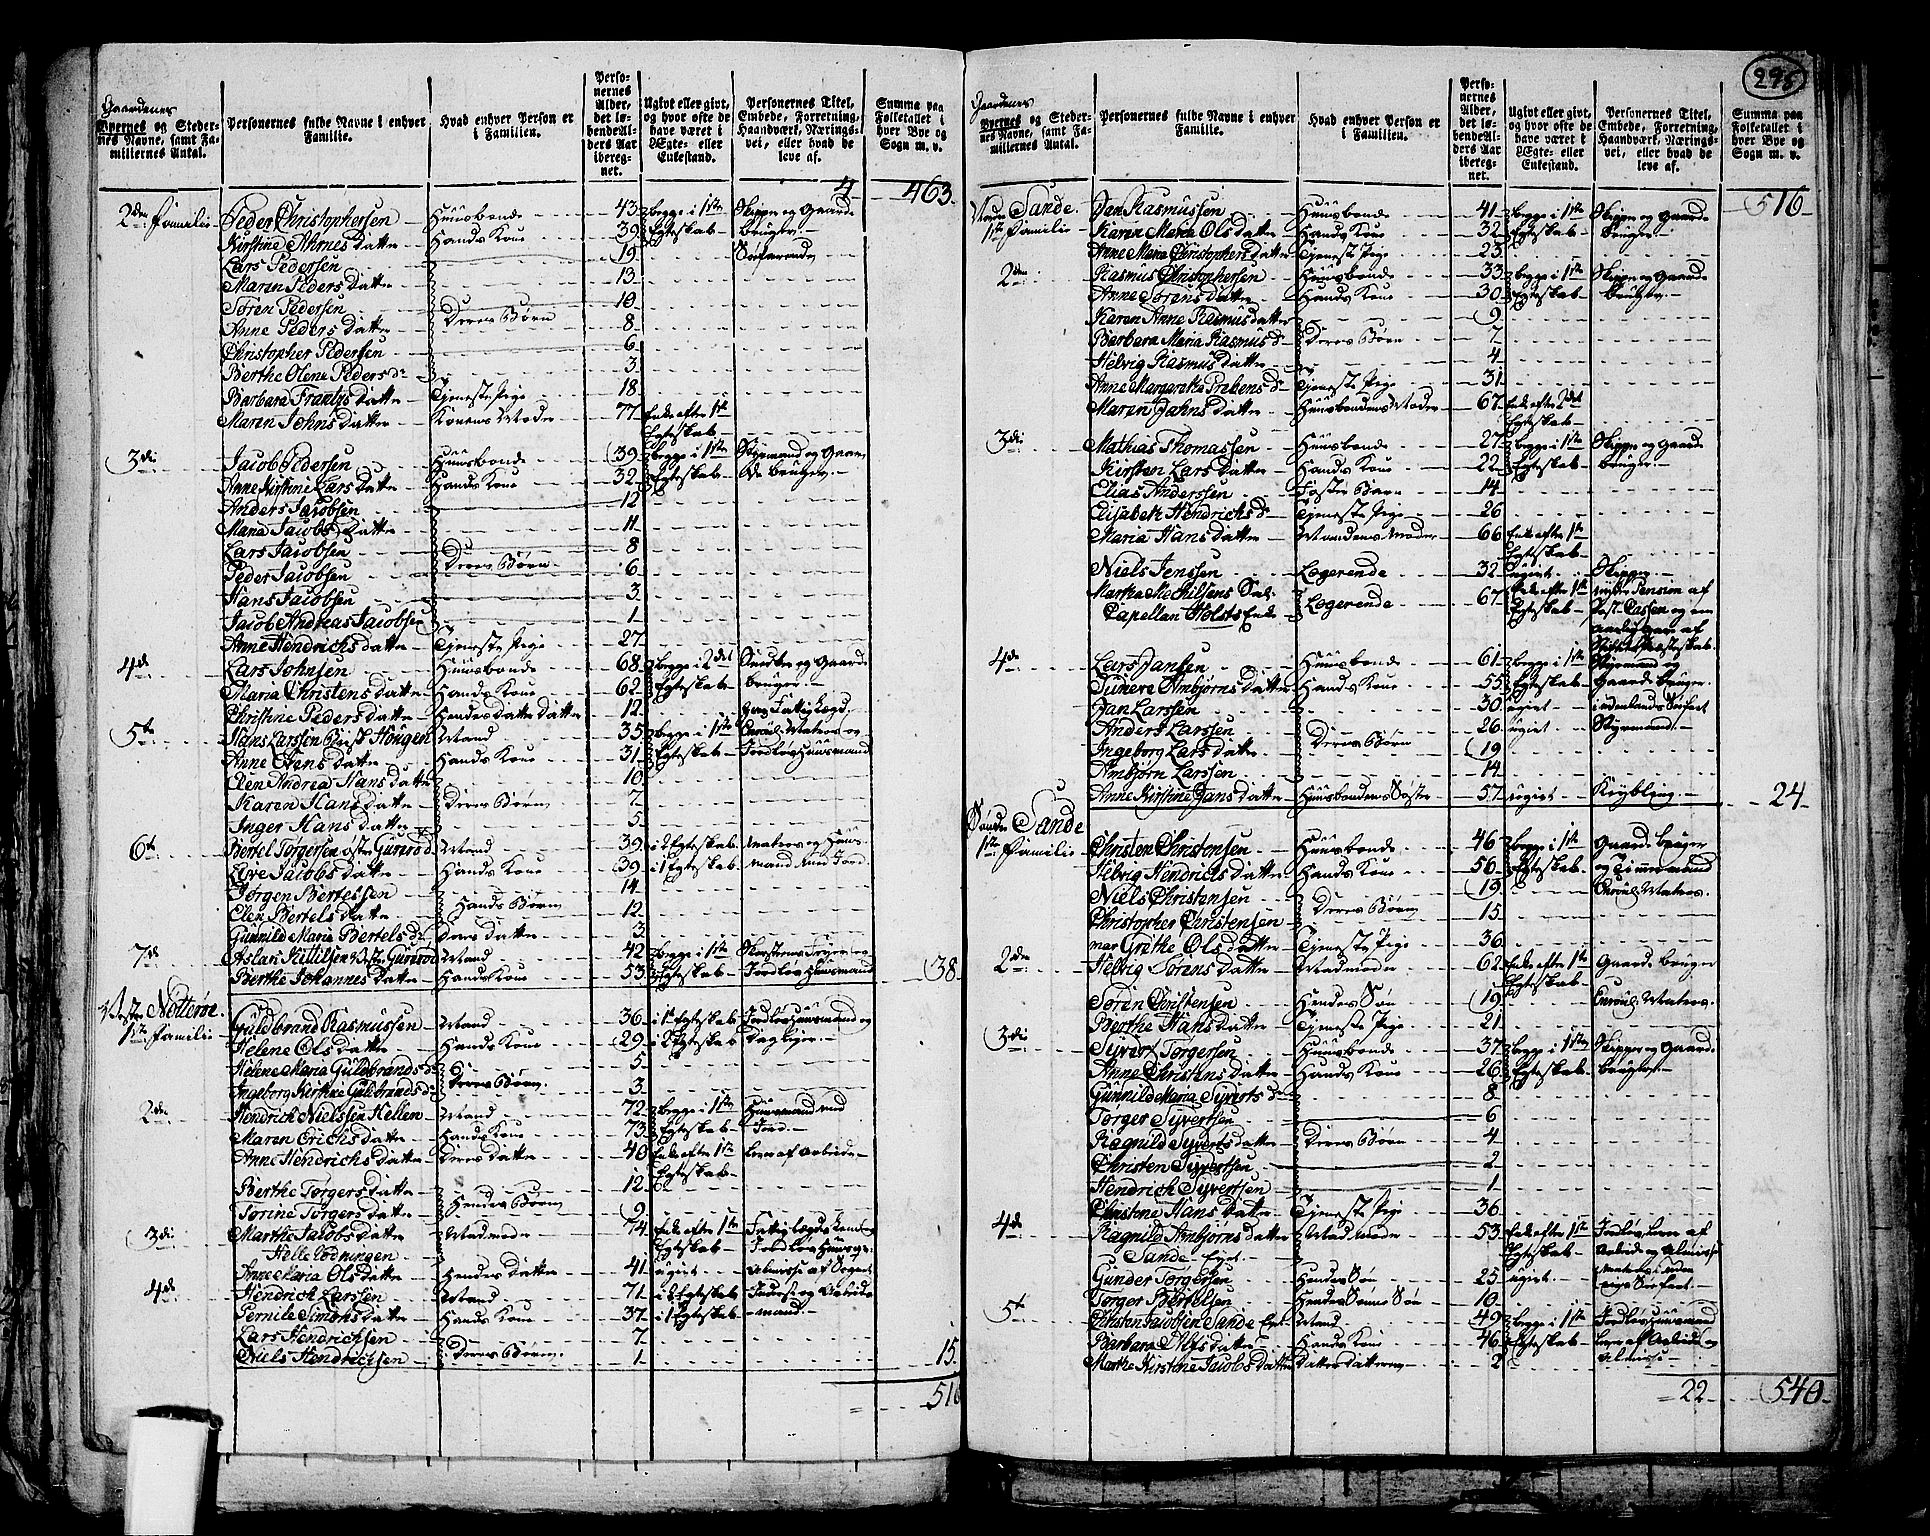 295
Gaardenes
Byernes og Steder-
nes Navne, samt Fa-
miliernes Antal.
Personernes fulde Navne i enhver
Familie.
Hvad enhver Person er
i Familien.
Perso-
nernes
Alder,
det lø-
bende Al-
ders Aar
ibereg-
net.
Ugivt eller givt,
og hvor ofte de
have været i
Ægte- eller
Enkestand.
Personernes Titel,
Embede, Forretning,
Haandværk, Nærings-
vei, eller hvad de
leve af.
Summa paa
Folketallet i
hver Bye og
Sogn m. v.
4 463
2den Familie Peder Christophersen Huusbonde 43 begge i 1ste Skipper og Gaard-
Kirstine Ahrnes datter Hands Kone 39 Egteskab bruger
Lars Pedersen 19 Søefarende
Maren Peders datter 13
Søren Pedersen 10
Anne Peders datter Deres Børn 8
Christopher Pedersen 6
Berthe Olene Peders dr 3
Barbara Frantzs datter Tjeneste Pige 18
Maren Johns datter Konens Moder 77 Enke efter 1ste
Egteskab
3die Jacob Pedersen Huusbonde 39 begge i 1ste Styrmand og Gaar-
Anne Kirstine Lars datter Hands Kone 32 Egteskab de bruger
Anders Jacobsen 12
Maria Jacobs datter 11
Lars Jacobsen 8
Peder Jacobsen Deres Børn 6
Hans Jacobsen 3
Jacob Andreas Jacobsen 1
Anne Hendrichs datter Tjeneste Pige 27
4de Lars Johnsen Huusbonde 68 begge i 2det Gaard-
Maria Christens datter Hands Kone 62 Egteskab bruger
Christine Peders datter Hendes datter datter 12
5te Hans Larssen Hougen Mand 35 begge i 1ste Matros og
Anne Jens datter Hands Kone 31 Egteskab Jordløs Huusmand
Elen Andrea Hans datter 10
Karen Hans datter Deres Børn 7
Inger Hans datter 5
6te Bertel Torgersen øster Gunerød Mand 39 i 2 Egteskab Matros og Huus-
Live Jacobs datter Hands Kone 39 i 1 Egteskab mand med Jord
Jørgen Bertelsen 14
Elen Bertels datter Hands Børn 12
Gunnild Maria Bertels dr deres datter 3
7de Aslan Kittilsen Gunerød Mand 42 begge i 1ste
Berthe Johannes datter Hands Kone 53 Egteskab Jordløs Huusmand 38
Vester Nøtterøe
1ste Familie Guldbrand Rasmussen Mand 36 i 1 Egteskab Jordløs huusmand og
Helene Ols datter Hands Kone 29 i 2 Egteskab Daglejer
Helene Maria Guldbrands dr 5
Ingeborg Kirstine Guldbrands dr Deres Børn 3
2den Hendrich Nielssen Hellen Mand 72 begge i 1ste Huusmand med
Maren Erichs datter Hands Kone 73 Egteskab Jord
Anne Hendrichs datter Deres datter 40 Enke efter 1ste Lever af Arbeide
Egteskab
Berthe Torgers datter 12
Torine Torgers datter Hendes Børn 9
3die Marthe Jacobs datter Madmoder 74 Enke efter 1ste
Egteskab
Anne Maria Ols datter Hendes datter 41 ugivt
4de Hendrich Larssen Mand 71 i 2 Egteskab Arbeids
Pernile Simons datter Hands Kone 37 i 1 Egteskab mand
Lars Hendrichsen 7
Niels Hendrichsen Deres Børn 1 15
516
Gaardenes
Byernes og Steder-
nes Navne, samt Fa-
miliernes Antal.
Personernes fulde Navne i enhver
Familie.
Hvad enhver Person er
i Familien.
Perso-
nernes
Alder,
det lø-
bende Al-
ders Aar
ibereg-
net.
Ugivt eller givt,
og hvor ofte de
have været i
Ægte- eller
Enkestand.
Personernes Titel,
Embede, Forretning,
Haandværk, Nærings-
vei, eller hvad de
leve af.
Summa paa
Folketallet i
hver Bye og
Sogn m. v.
516
Nordre Sande Jan Rasmussen Huusbonde 41 begge i 1ste Skipper og Gaard-
1ste Familie Karen Maria Ols datter Hands Kone 32 Egteskab bruger
Anne Maria Christophers datter Tjeneste Pige 23
2den Rasmus Christophersen Huusbonde 33 begge i 1ste Skipper og Gaard-
Anne Sørens datter Hands Kone 30 Egteskab bruger
Karen Anne Rasmus datter 9
Barbara Maria Rasmus dr Deres Børn 7
Helvig Rasmus datter 4
Anne Margaretha Prebens dr Tjeneste Pige 31
Maren Jahns datter Huusbondens Moder 67 Enke efter 2det
Egteskab
3die Mathias Thomassen Huusbonde 27 begge i 1ste Skipper og Gaard-
Kirsten Lars datter Hands Kone 22 Egteskab bruger
Elias Anderssen Foster Barn 14
Elisabeth Hendrichs dr Tjeneste Pige 26
Maria Hans datter Mandens Moder 66 Enke efter 1ste
Egteskab
Niels Jenssen Logerende 32 ugivt Skipper
Martha Mechilsens Sal. Logerende 67 Enke efter 1ste nyder Pension af
Capellan Holsts Enke Egteskab Post Cassen og en
4de Lars Jansen Huusbonde 61 begge i 1ste Styrmand og
Sunere Ambjørns datter Hands Kone 55 Egteskab Gaard bruger
Jan Larssen 30 ugivt
Anders Larssen 26 ugivt Styrmand
Ingeborg Lars datter Deres Børn 19
Ambjørn Larssen 14
Anne Kirstine Jans datter Huusbondens Søster 57 ugivt 24
Søndre Sande
1ste Familie Christen Christensen Huusbonde 46 begge i 1ste Gaard bruger
Helvig Hendrichs datter Hands Kone 50 Egteskab og Tømmermand
Niels Christensen 19 Enroul. Matros
Christopher Christensen Deres Børn 15
mar Grethe Ols datter Tjeneste Pige 36
2den Helvig Sørens datter Madmoder 62 Enke efter 1ste Gaard bruger
Egteskab
Søren Christensen Hendes Søn 19 Enroul. Matros
Berthe Hans datter Tjeneste Pige 21
3die Syvert Torgersen Huusbonde 37 begge i 1ste Skipper og Gaard-
Anne Christens datter Hands Kone 26 Egteskab bruger
Gunnild Maria Syverts dr 8
Torger Syvertsen 6
Ragnild Syverts datter Deres Børn 4
Christen Syvertsen 2
Hendrich Syvertsen 1
Christine Hans datter Tjeneste Pige 36
4de Ragnild Ambjørns datter Madmoder 53 Enke efter 1ste Jordløs, lever af
Sande Eyet Egteskab Arbeide og Almisse
Gunder Torgersen Hendes Søn 25 ugivt
Torger Bertelsen Hendes Sønne Søn 10
5te Christen Jacobsen Sande Eyet Mand 49 begge i 1ste Jordløs huusmand
Barbara Olfs datter Hands Kone 46 Egteskab lever af Arbeide og
Marthe Kirstine Jacobs datter Datter datter 2 Almisse
22 540